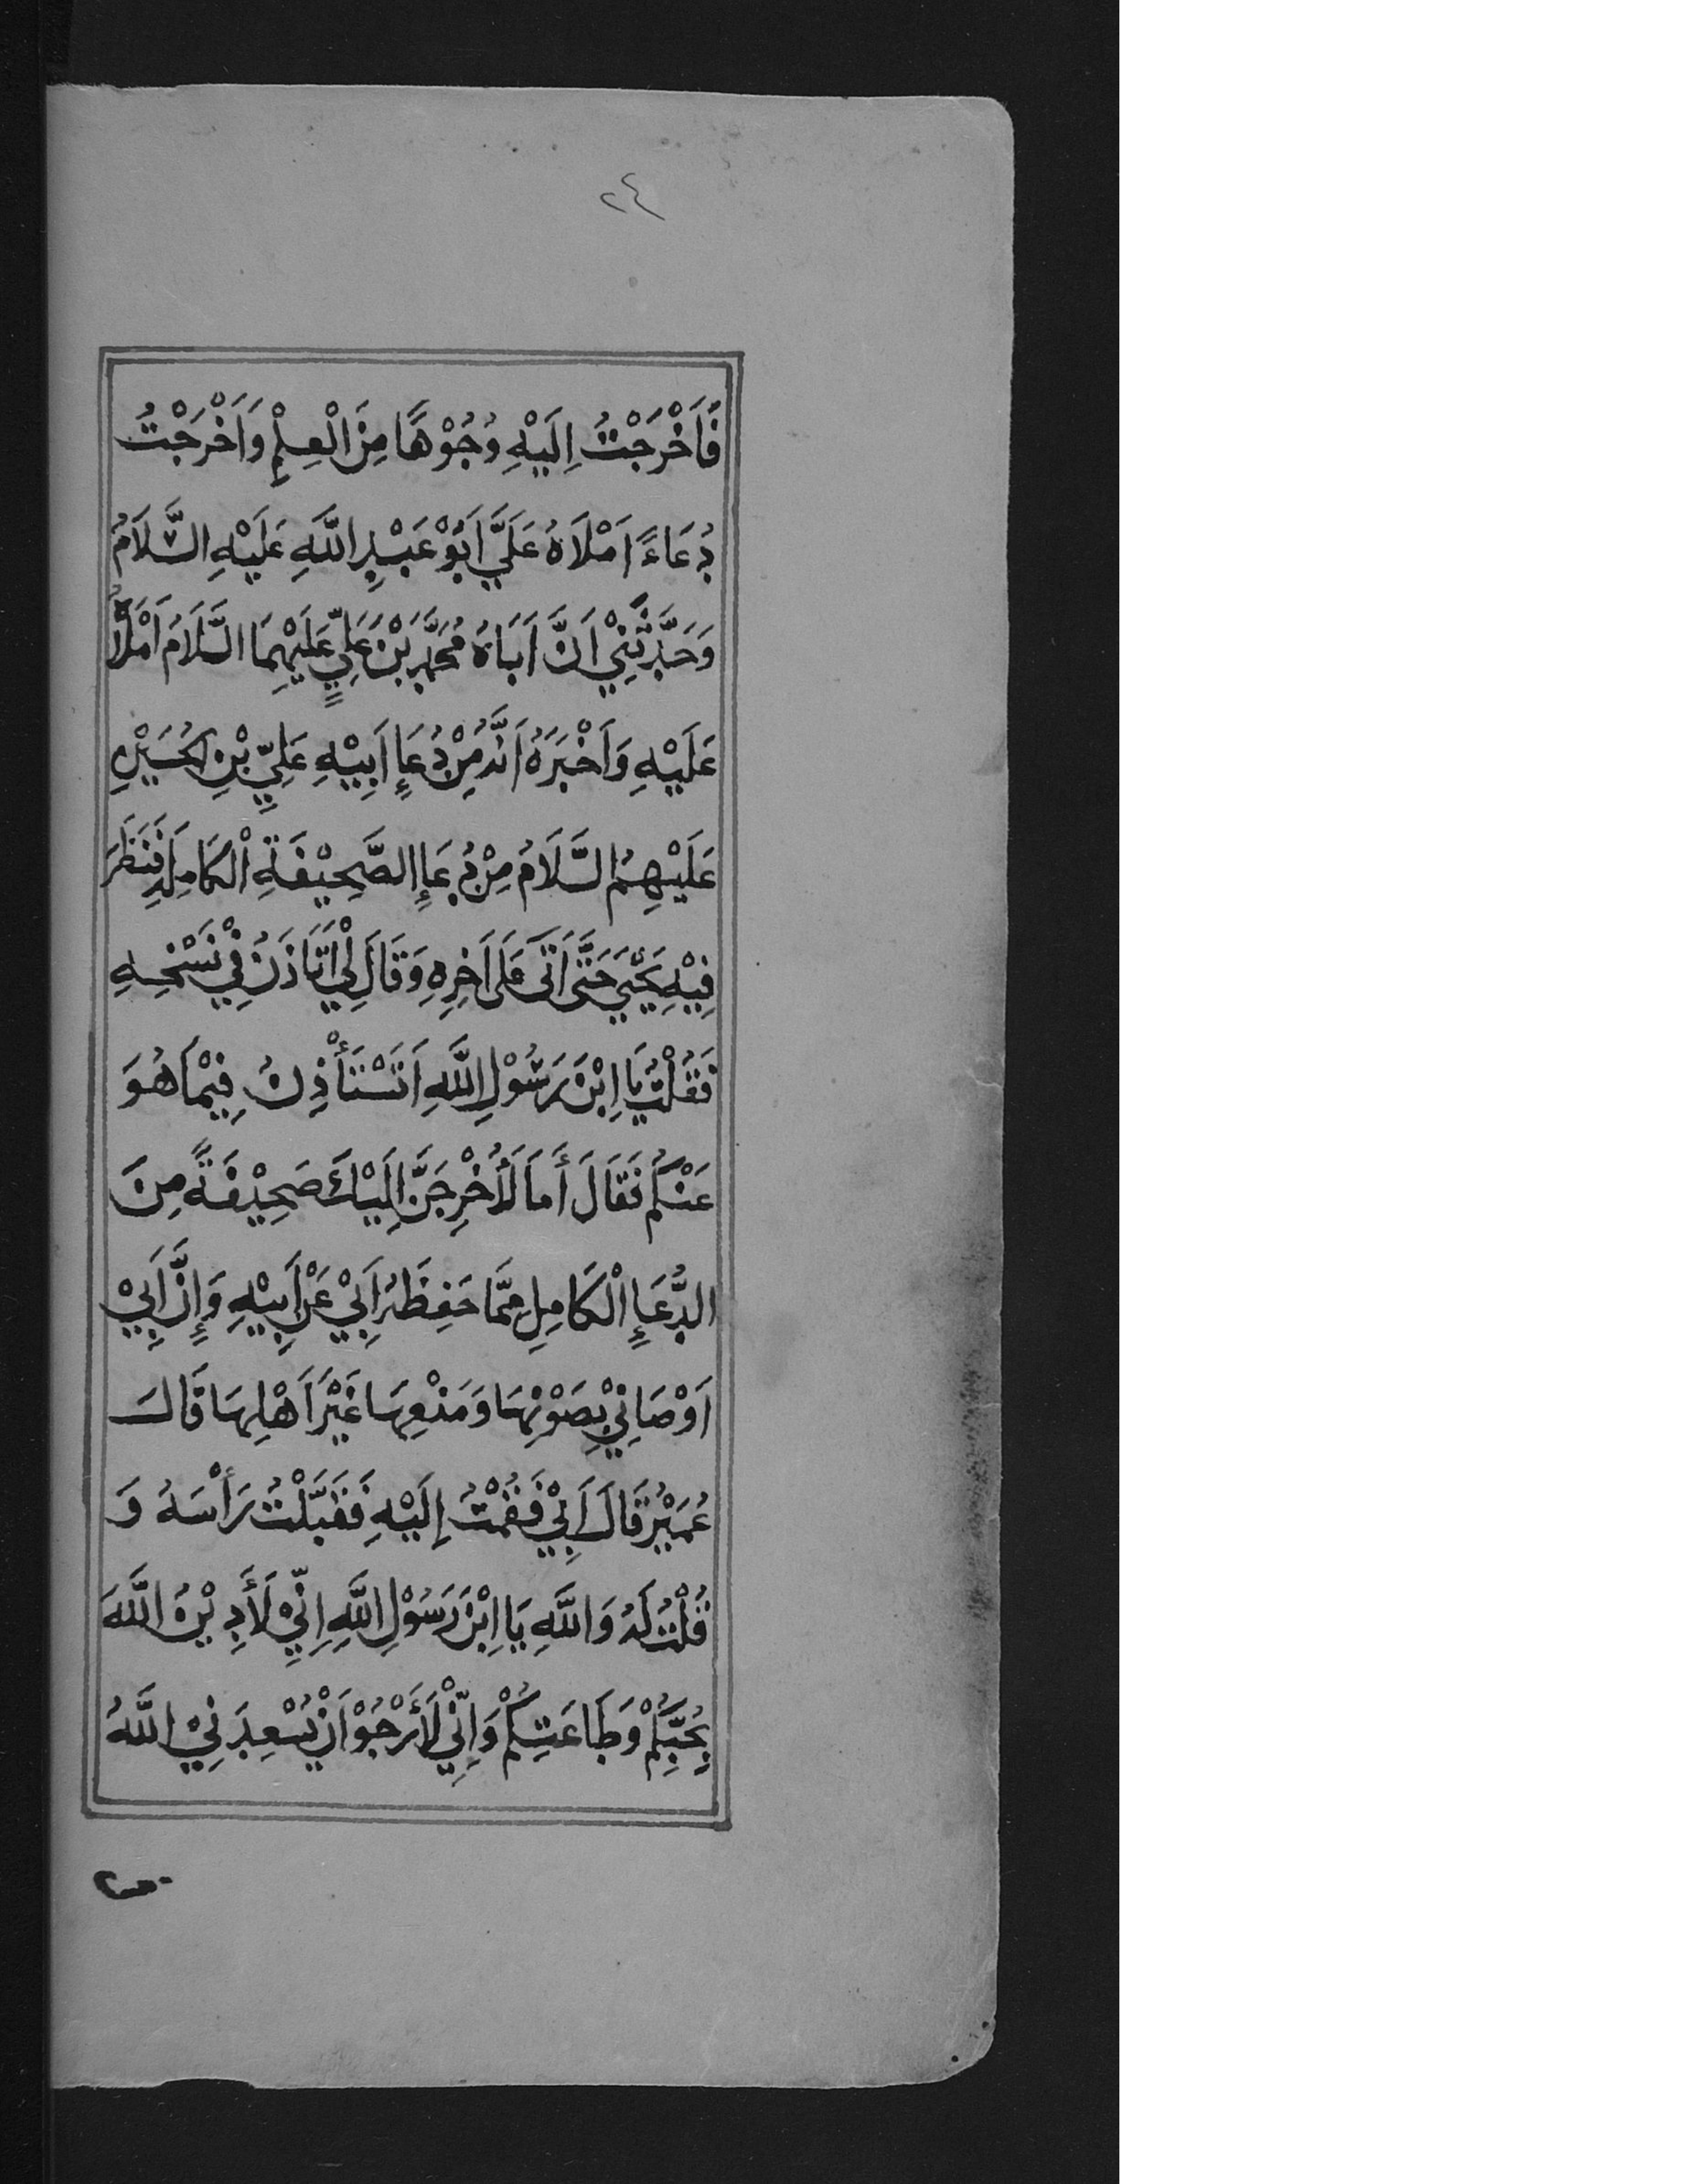 ٢٤
فَاَخْرَجْتُ اِلَيْهِ وُجُوْهًا مِنَ الْعِلْمِ وَاَخْرَجْتُ
دُعَاءً اَمْلَاهُ عَلَيَّ اَبُوْ عَبْدِ اللَّهِ عَلَيْهِ السَّلَامُ
وَحَدَّثَنِيْ اَنَّ اَبَاهُ مُحَمَّدَ بْنَ عَلِيٍّ عَلَيْهِمَا السَّلَامُ اَمْلَاهُ
عَلَيْهِ وَاَخْبَرَهُ اَنَّهُ مِنْ دُعَاءِ اَبِيْهِ عَلِيِّ بْنِ الْحُسَيْنِ
عَلَيْهِمُ السَّلَامُ مِنْ دُعَاءِ الصَّحِيْفَةِ الْكَامِلَةِ فَنَظَرَ
فِيْهِ يَحْيَى حَتَّى اَتَى عَلَى اَخِرِهِ وَقَالَ لِيْ اَتَاْذَنُ فِيْ نَسْخِهِ
فَقُلْتُ يَا اِبْنَ رَسُوْلِ اللَّهِ اَتَسْتَأْذِنُ فِيْمَا هُوَ
عَنْكُمْ فَقَالَ أَمَا لَأُخْرِجَنَّ اِلَيْكَ صَحِيْفَةً مِنَ
الدُّعَاءِ الْكَامِلِ مِمَّا حَفِظَهُ اَبِيْ عَنْ اَبِيْهِ وَإِنَّ اَبِيْ
اَوْصَانِيْ بِصَوْنِهَا وَمَنْعِهَا غَيْرَ اَهْلِهَا قَالَ
عُمَيْرٌ قَالَ اَبِيْ فَقُمْتُ إِلَيْهِ فَقَبَّلْتُ رَأْسَهُ وَ
قُلْتُ لَهُ وَاللَّهِ يَا اِبْنَ رَسُوْلِ اللَّهِ اِنِّيْ لَأَدِيْنُ اللَّهَ
بِحُبِّكُمْ وَطَاعَتِكُمْ وَاِنِّيْ لَأَرْجُوْ اَنْ يُسْعِدَنِيْ اللَّهُ